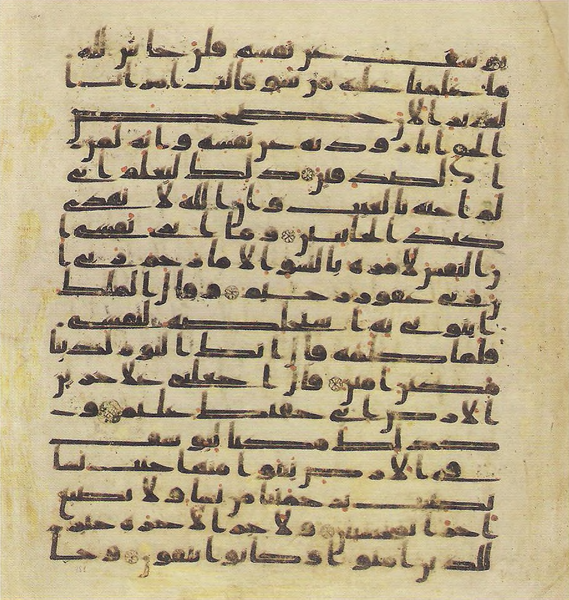 يوسف عن نفسه قلن حاش لله
ما علمنا عليه من سو قالت امرات ا
لعزيز الان حصحص
الحق انا رودته عن نفسه وانه لمن
الصدقين ذلك ليعلم اني
لم اخنه بالغيب وان الله لا يهدي
كيد الخاينين وما ابرى نفسي ا
ن النفس لامرة بالسو الا ما رحم ربي ا
ن ربي غفور رحيم وقال الملك
ايتوني به استخلصه لنفسي
فلما كلمه قال انك اليوم لدينا
مكين امين قال اجعلني علا خزين
الارض اني حفيظ عليم و
كذلك مكنا ليوسف
في الارض يتبوا منها حيث يشا
نصيب برحمتنا من نشا ولا نضيع
اجر المحسنين ولاجر الاخرة خير
للذين امنوا وكانوا يتقون وجا